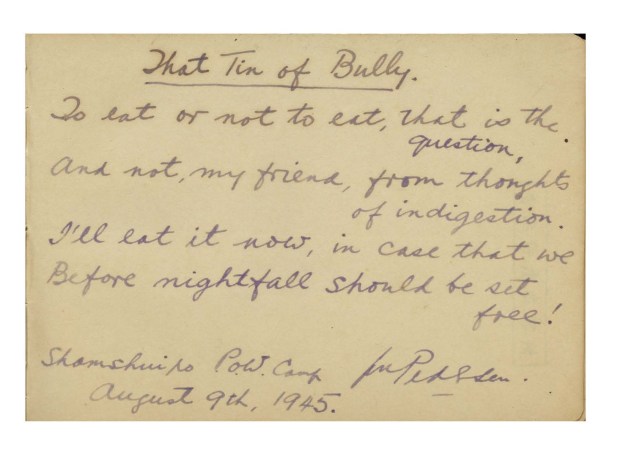 That Tin of Bully.
To eat or not to eat, that is the
question,
And not, my friend, from thoughts
of indigestion.
I'll eat it now, in case that we
Before nightfall should be set
free!
Shamshuipo P.o.W. Camp
August 9th, 1945.